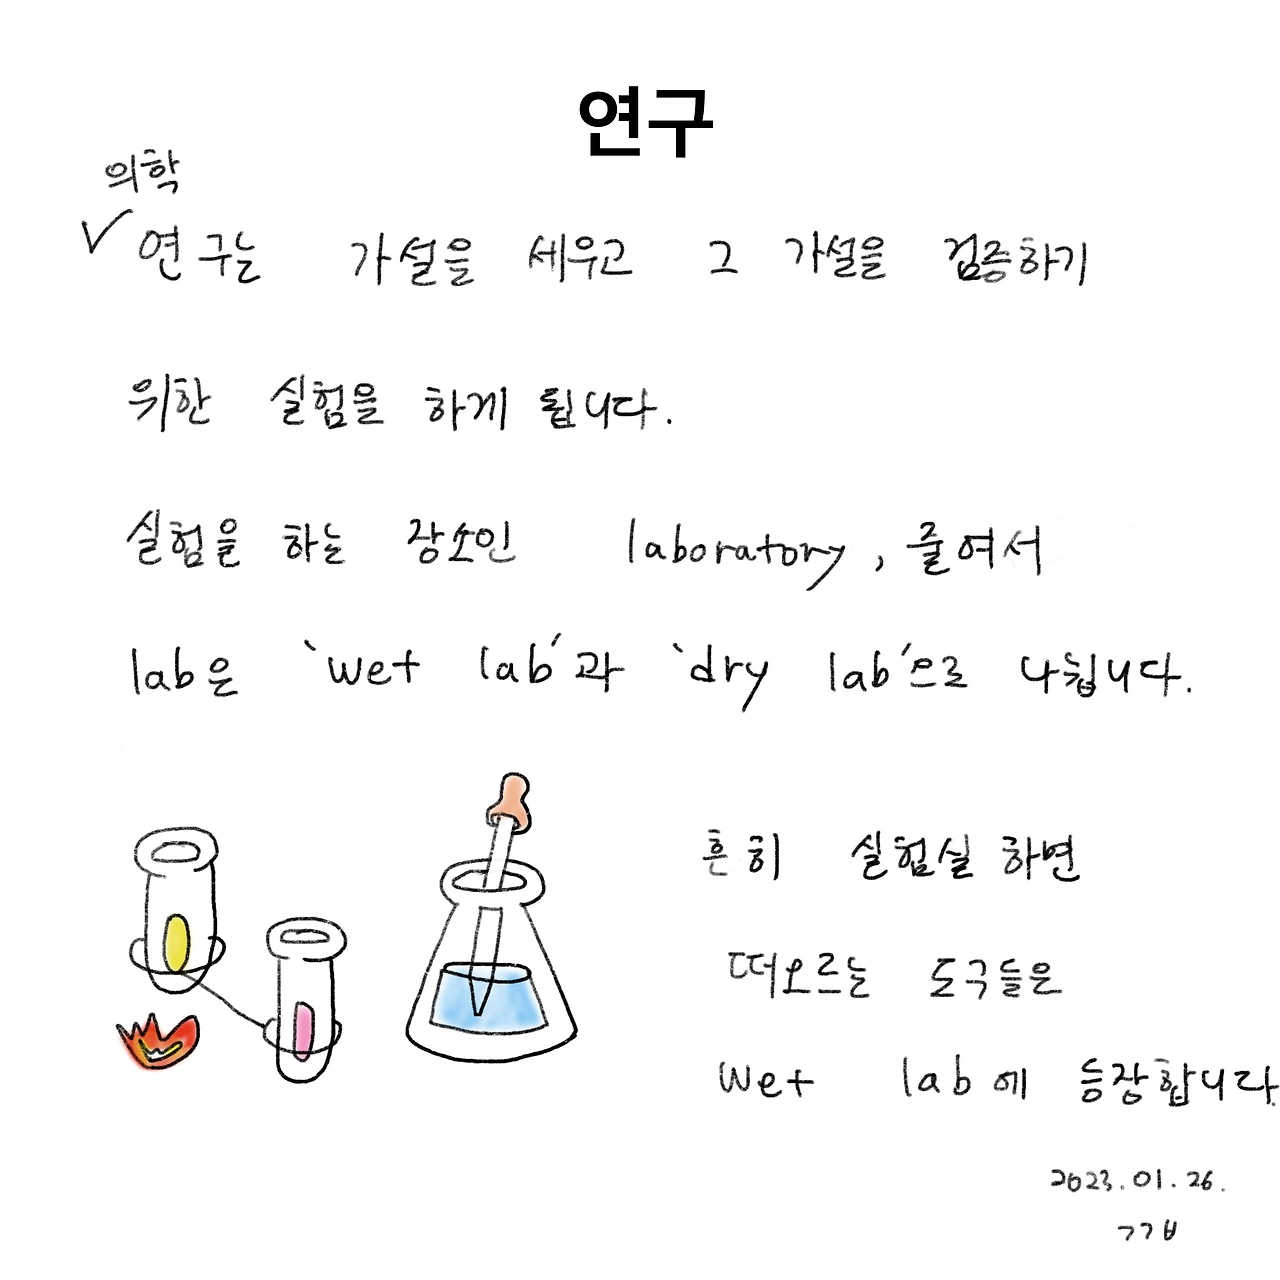 연구
의학
✓연구는 가설을 세우고 그 가설을 검증하기
위한 실험을 하게 됩니다.
실험을 하는 장소인 laboratory, 줄여서
lab은 `wet lab'과 `dry lab'으로 나뉩니다.
흔히 실험실 하면
떠오르는 도구들은
wet lab에 등장합니다.
2023.01.26.
ㄱㄱㅂ